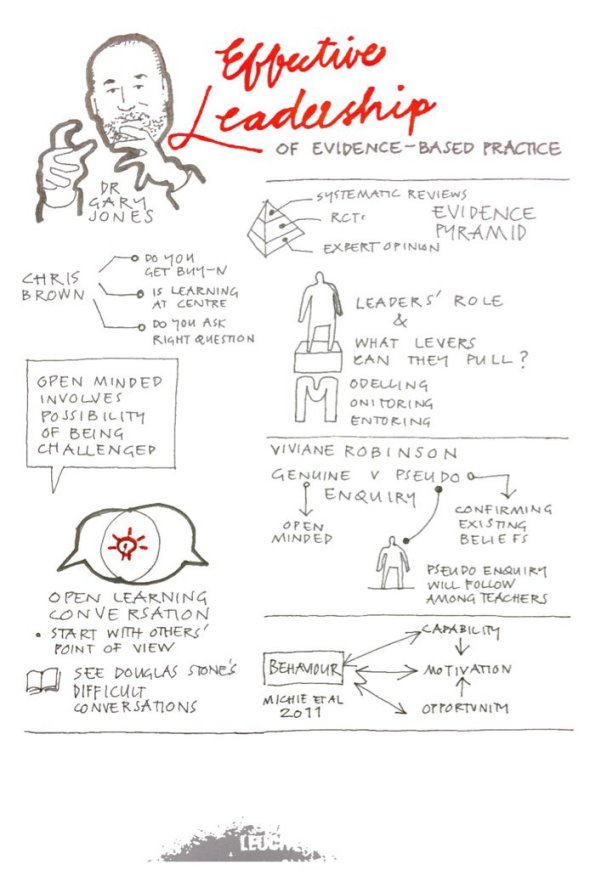 Effective
Leadership
OF EVIDENCE-BASED PRACTICE
DR
GARY
JONES
SYSTEMATIC REVIEWS
RCTs
EXPERT OPINION
EVIDENCE
PYRAMID
CHRIS
BROWN
DO YOU
GET BUY-N
IS LEARNING
AT CENTRE
DO YOU ASK
RIGHT QUESTION
LEADERS' ROLE
&
WHAT LEVERS
CAN THEY PULL?
M
ODELLING
ONITORING
ENTORING
OPEN MINDED
INVOLVES
POSSIBILITY
OF BEING
CHALLENGED
VIVIANE ROBINSON
GENUINE V PSEUDO
ENQUIRY
OPEN
MINDED
CONFIRMING
EXISTING
BELIEFS
PSEUDO ENQUIRY
WILL FOLLOW
AMONG TEACHERS
OPEN LEARNING
CONVERSATION
• START WITH OTHERS'
POINT OF VIEW
SEE DOUGLAS STONE'S
DIFFICULT
CONVERSATIONS
BEHAVIOUR
MICHIE ET AL
2011
CAPABILITY
MOTIVATION
OPPORTUNITY